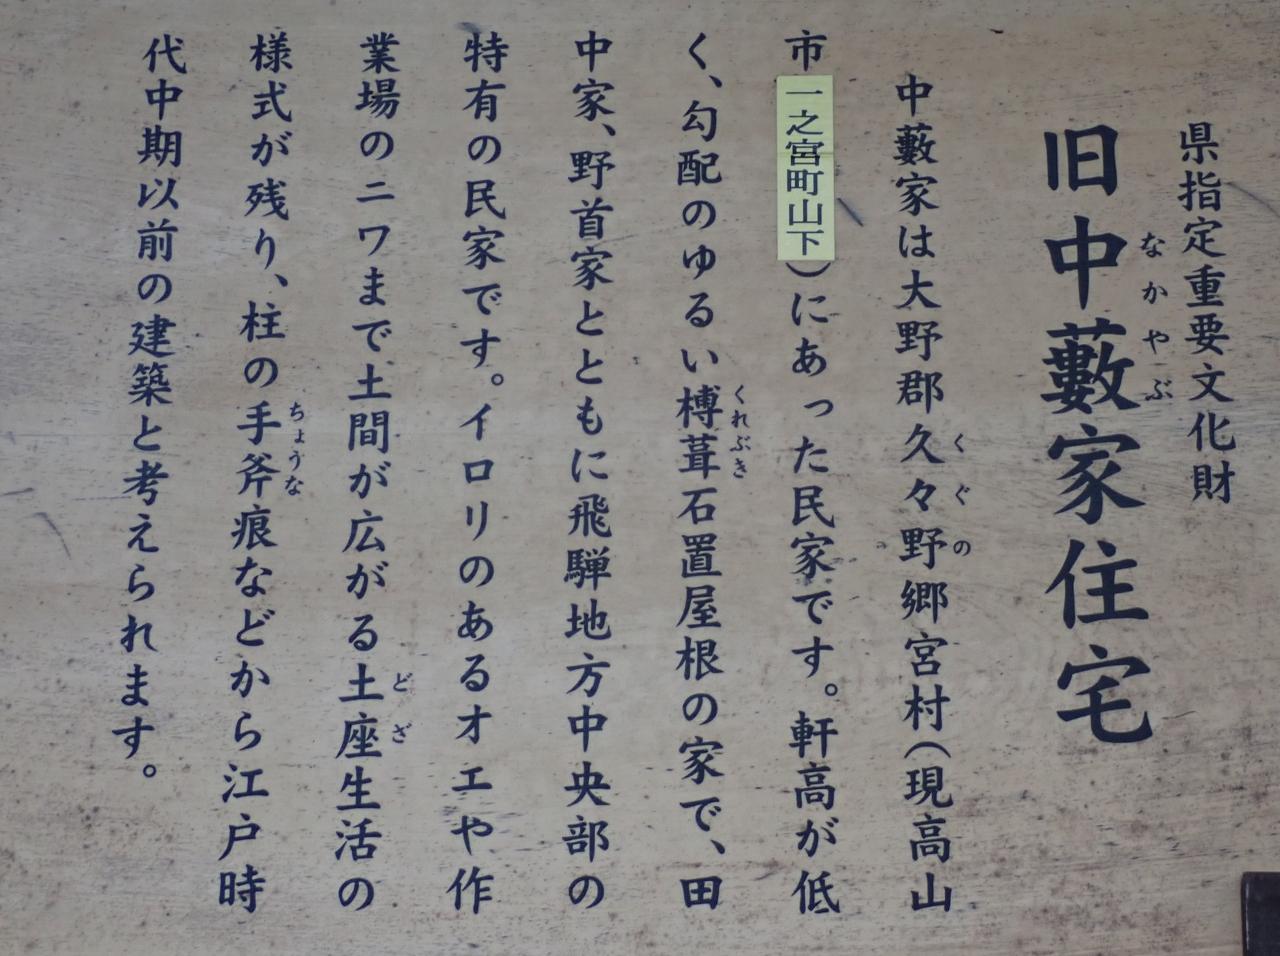 県指定重要文化財
旧中藪家住宅
なかやぶ
中藪家は大野郡久々野郷宮村(現高山
くぐの
市一之宮町山下)にあった民家です。軒高が低
く、勾配のゆるい榑葺石置屋根の家で、田
くれぶき
中家、野首家とともに飛騨地方中央部の
特有の民家です。イロリのあるオエや作
業場のニワまで土間が広がる土座生活の
どざ
様式が残り、柱の手斧痕などから江戸時
ちょうな
代中期以前の建築と考えられます。